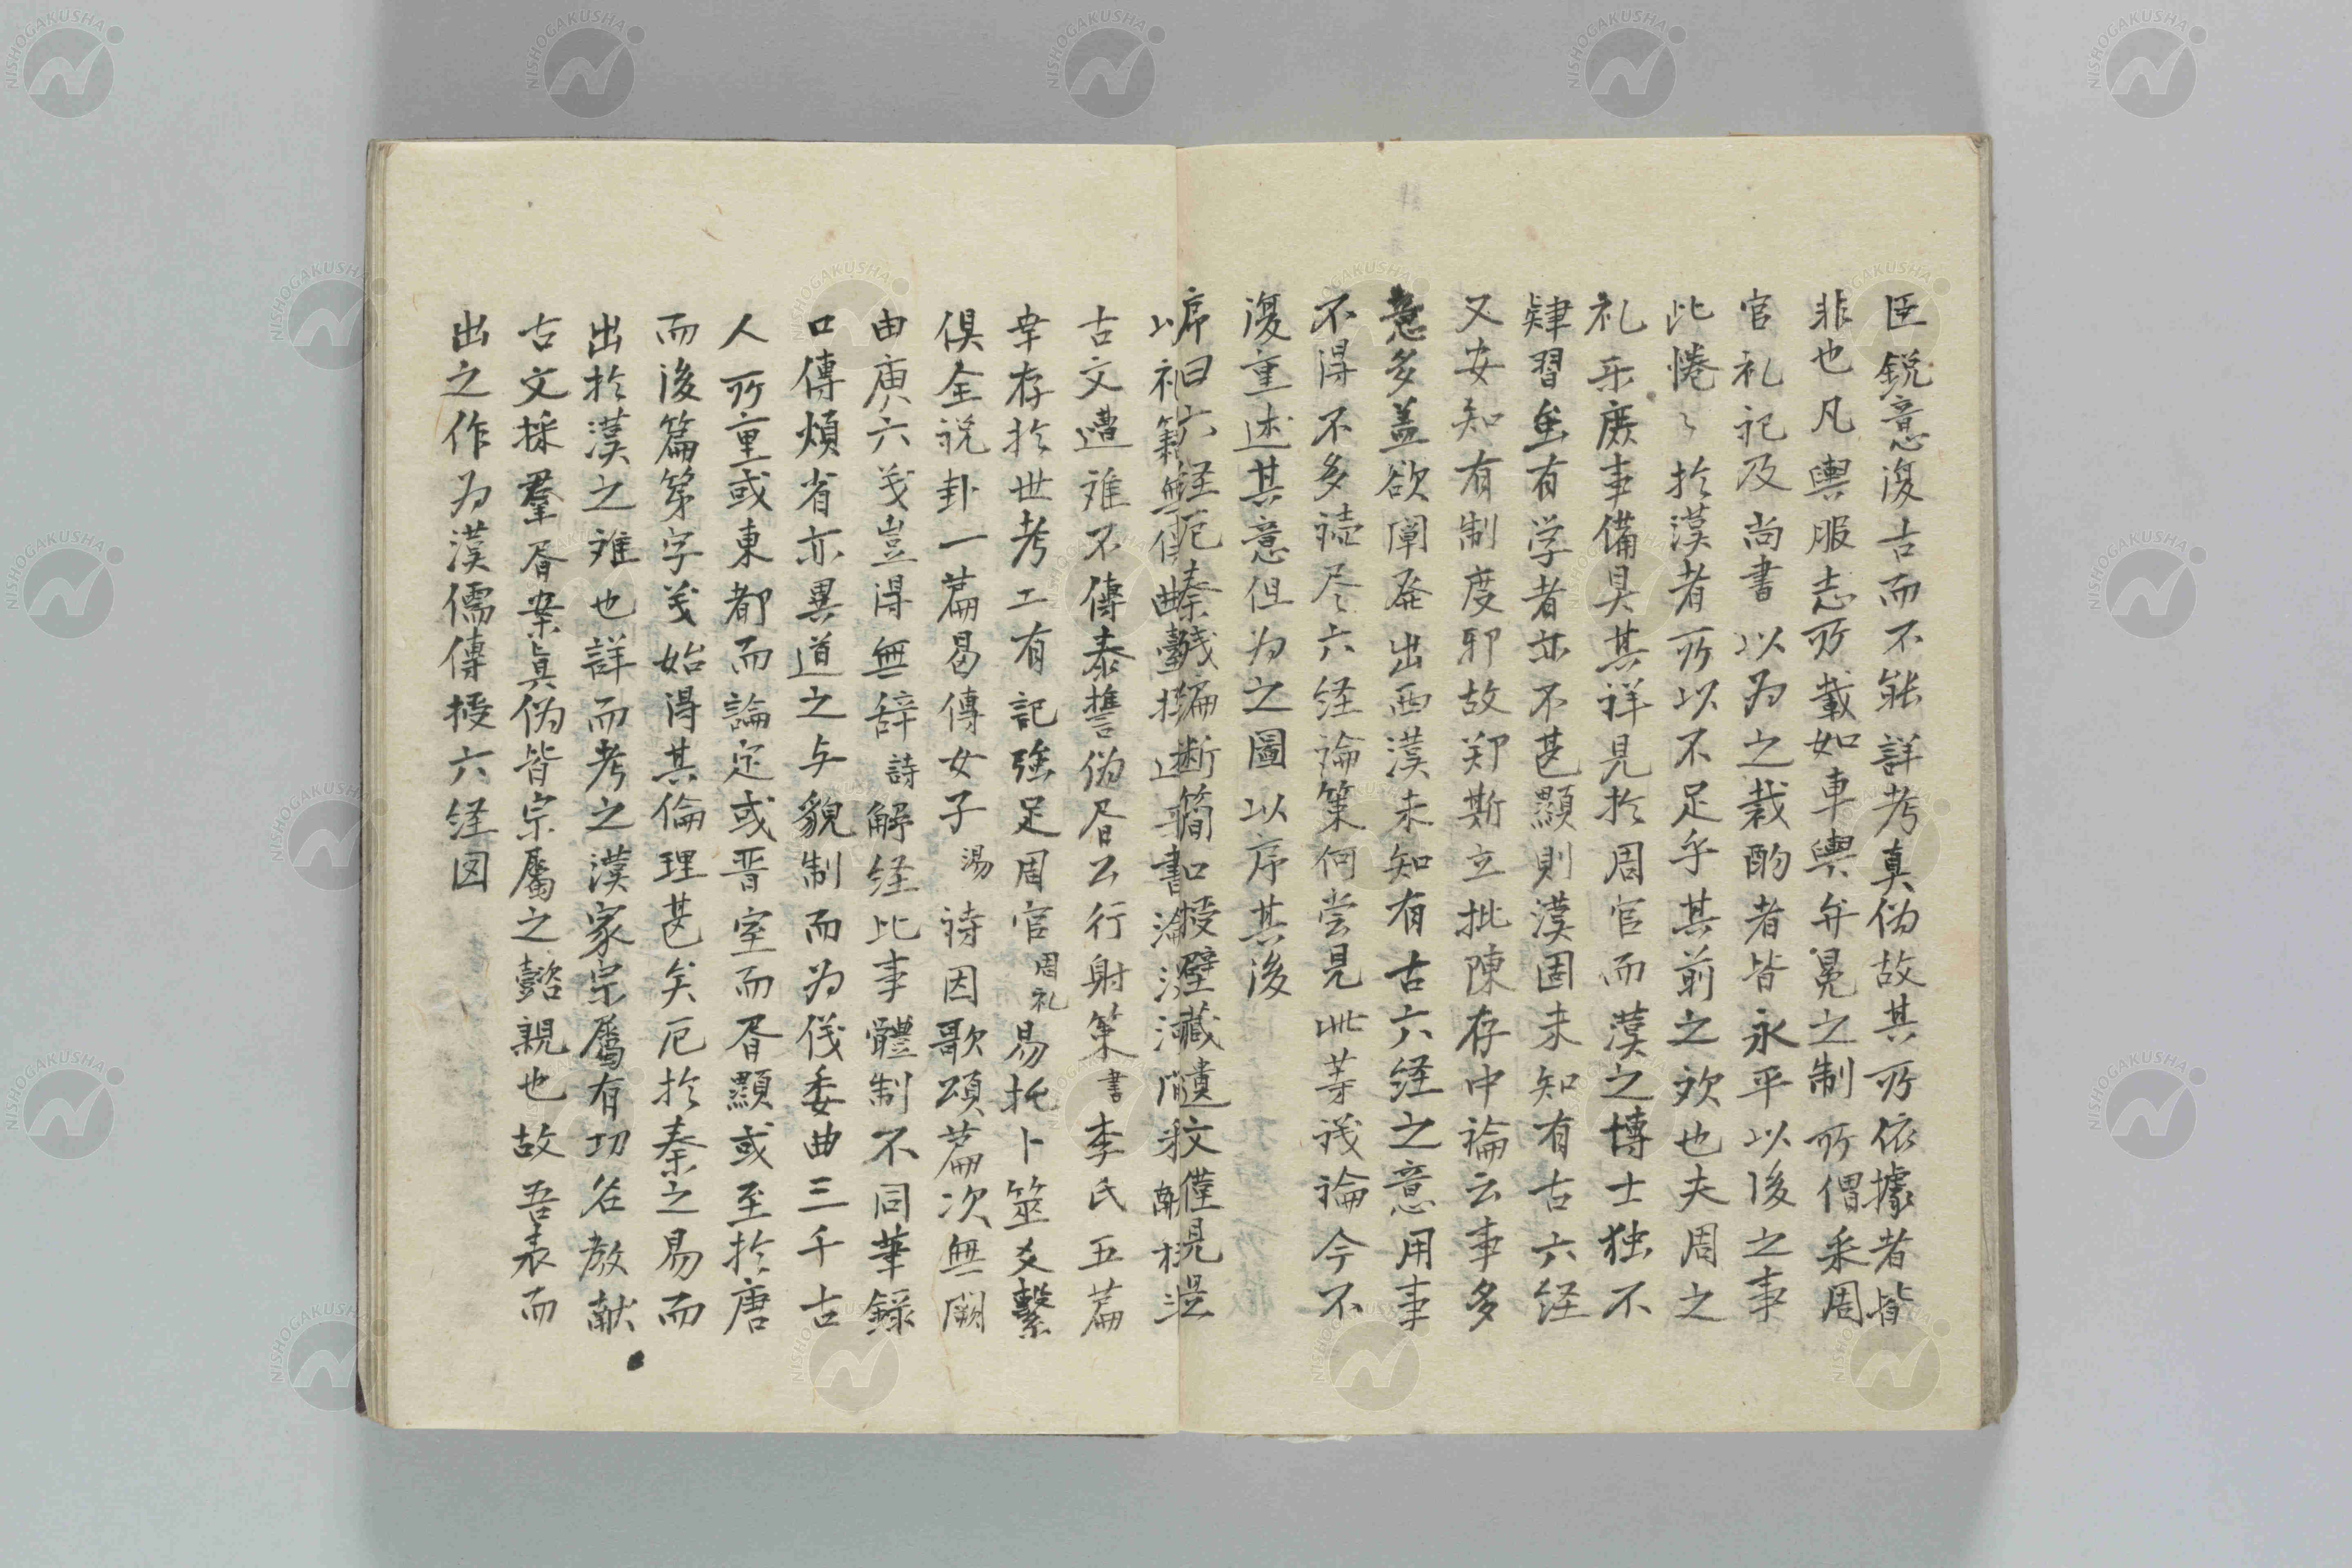 臣銳意復古而不能詳考真偽故其所依據者皆
非也凡輿服志所載如車輿弁冕之制所僭采周
官礼記及尚書以為之裁酌者皆永平以後之事
比惓々於漢者所以不足乎其前之欤也夫周之
礼乐廢事備具其祥見於周官而漢之博士独不
肄習虽有学者亦不甚顯則漢固未知有古六経
又安知有制度邪故郑斯立批陳存中論云事多
意多盖欲闡発出西漢未知有古六経之意用事
不得不多読尽六経論策何尝見此等議論今不
復重述其意但为之圖以序其後
序曰六経厄秦残編断簡口授壁藏遺文僅見
古文遭难不傳泰誓伪眉公行射策書李氏五篇
幸存於世考工有記強足周官周礼易托卜筮爻繫
俱全説卦一篇易傳女子湯诗因歌頌篇次無闕
由庚六義豈得無辞詩解経比事體制不同華録
口傳煩省亦異道之与貌制而为伐委曲三千古
人所重或東都而論定或晋室而眉顯或至於唐
而後篇第字義始得其倫理甚矣厄於秦之易而
出於漢之难也詳而考之漢家宗属有功谷敖献
古文採羣眉案真伪皆宗屬之懿親也故吾表而
出之作为漢儒傳授六経図